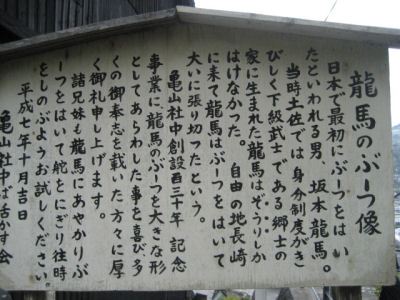 龍馬のぶーつ像
日本で最初にブーツをはい
たといわれる男 坂本龍馬。
当時土佐では身分制度がき
びしく下級武士である郷士の
家に生まれた龍馬はぞうりしか
はけなかった。 自由の地長崎
に来て龍馬はブーツをはいて
大いに張り切ったという。
亀山社中創設百三十年 記念
事業に、龍馬のぶーつを大きな形
としてあらわした事を喜び多
くの御奉志を戴いた方々に厚
く御礼申し上げます。
諸兄妹も龍馬にあやかりぶ
ーつをはいて舵をにぎり往時
をしのぶようお試しください。
平成七年十月吉日
亀山社中ば活かす会